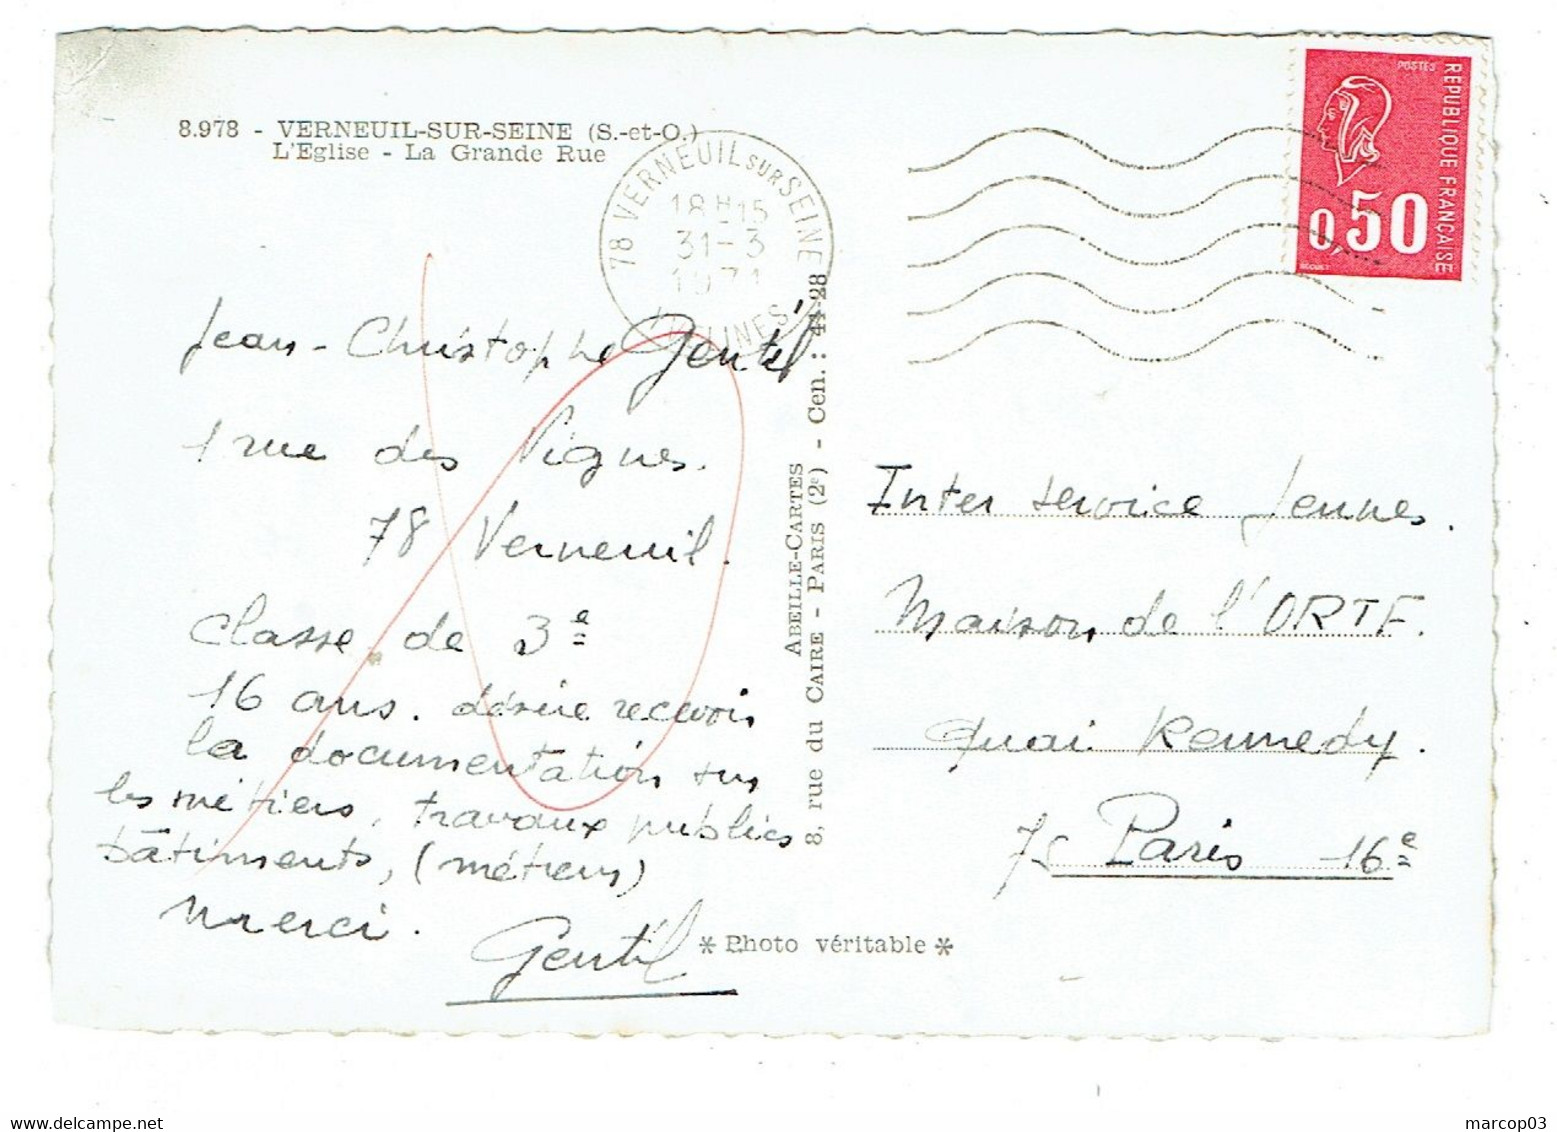 8.978 - VERNEUIL-SUR-SEINE (S.-et-O.)
L'Eglise - La Grande Rue
78 VERNEUIL SUR SEINE
18H15
31-3
1971
YVELINES
POSTES
REPUBLIQUE FRANÇAISE
0,50
BEQUET
Jean-Christophe Gentil
1 rue des Vignes.
78 Verneuil.
Classe de 3e
16 ans. désire recevoir
la documentation sur
les métiers, travaux publics
bâtiments, (métiers)
merci.
Gentil
ABEILLE-CARTES
8, rue du CAIRE - PARIS (2e) - Cen. : 44-28
* Photo véritable *
Inter service Jeunes.
Maison de l'ORTF.
Quai Kennedy.
75 Paris 16e
marcop03